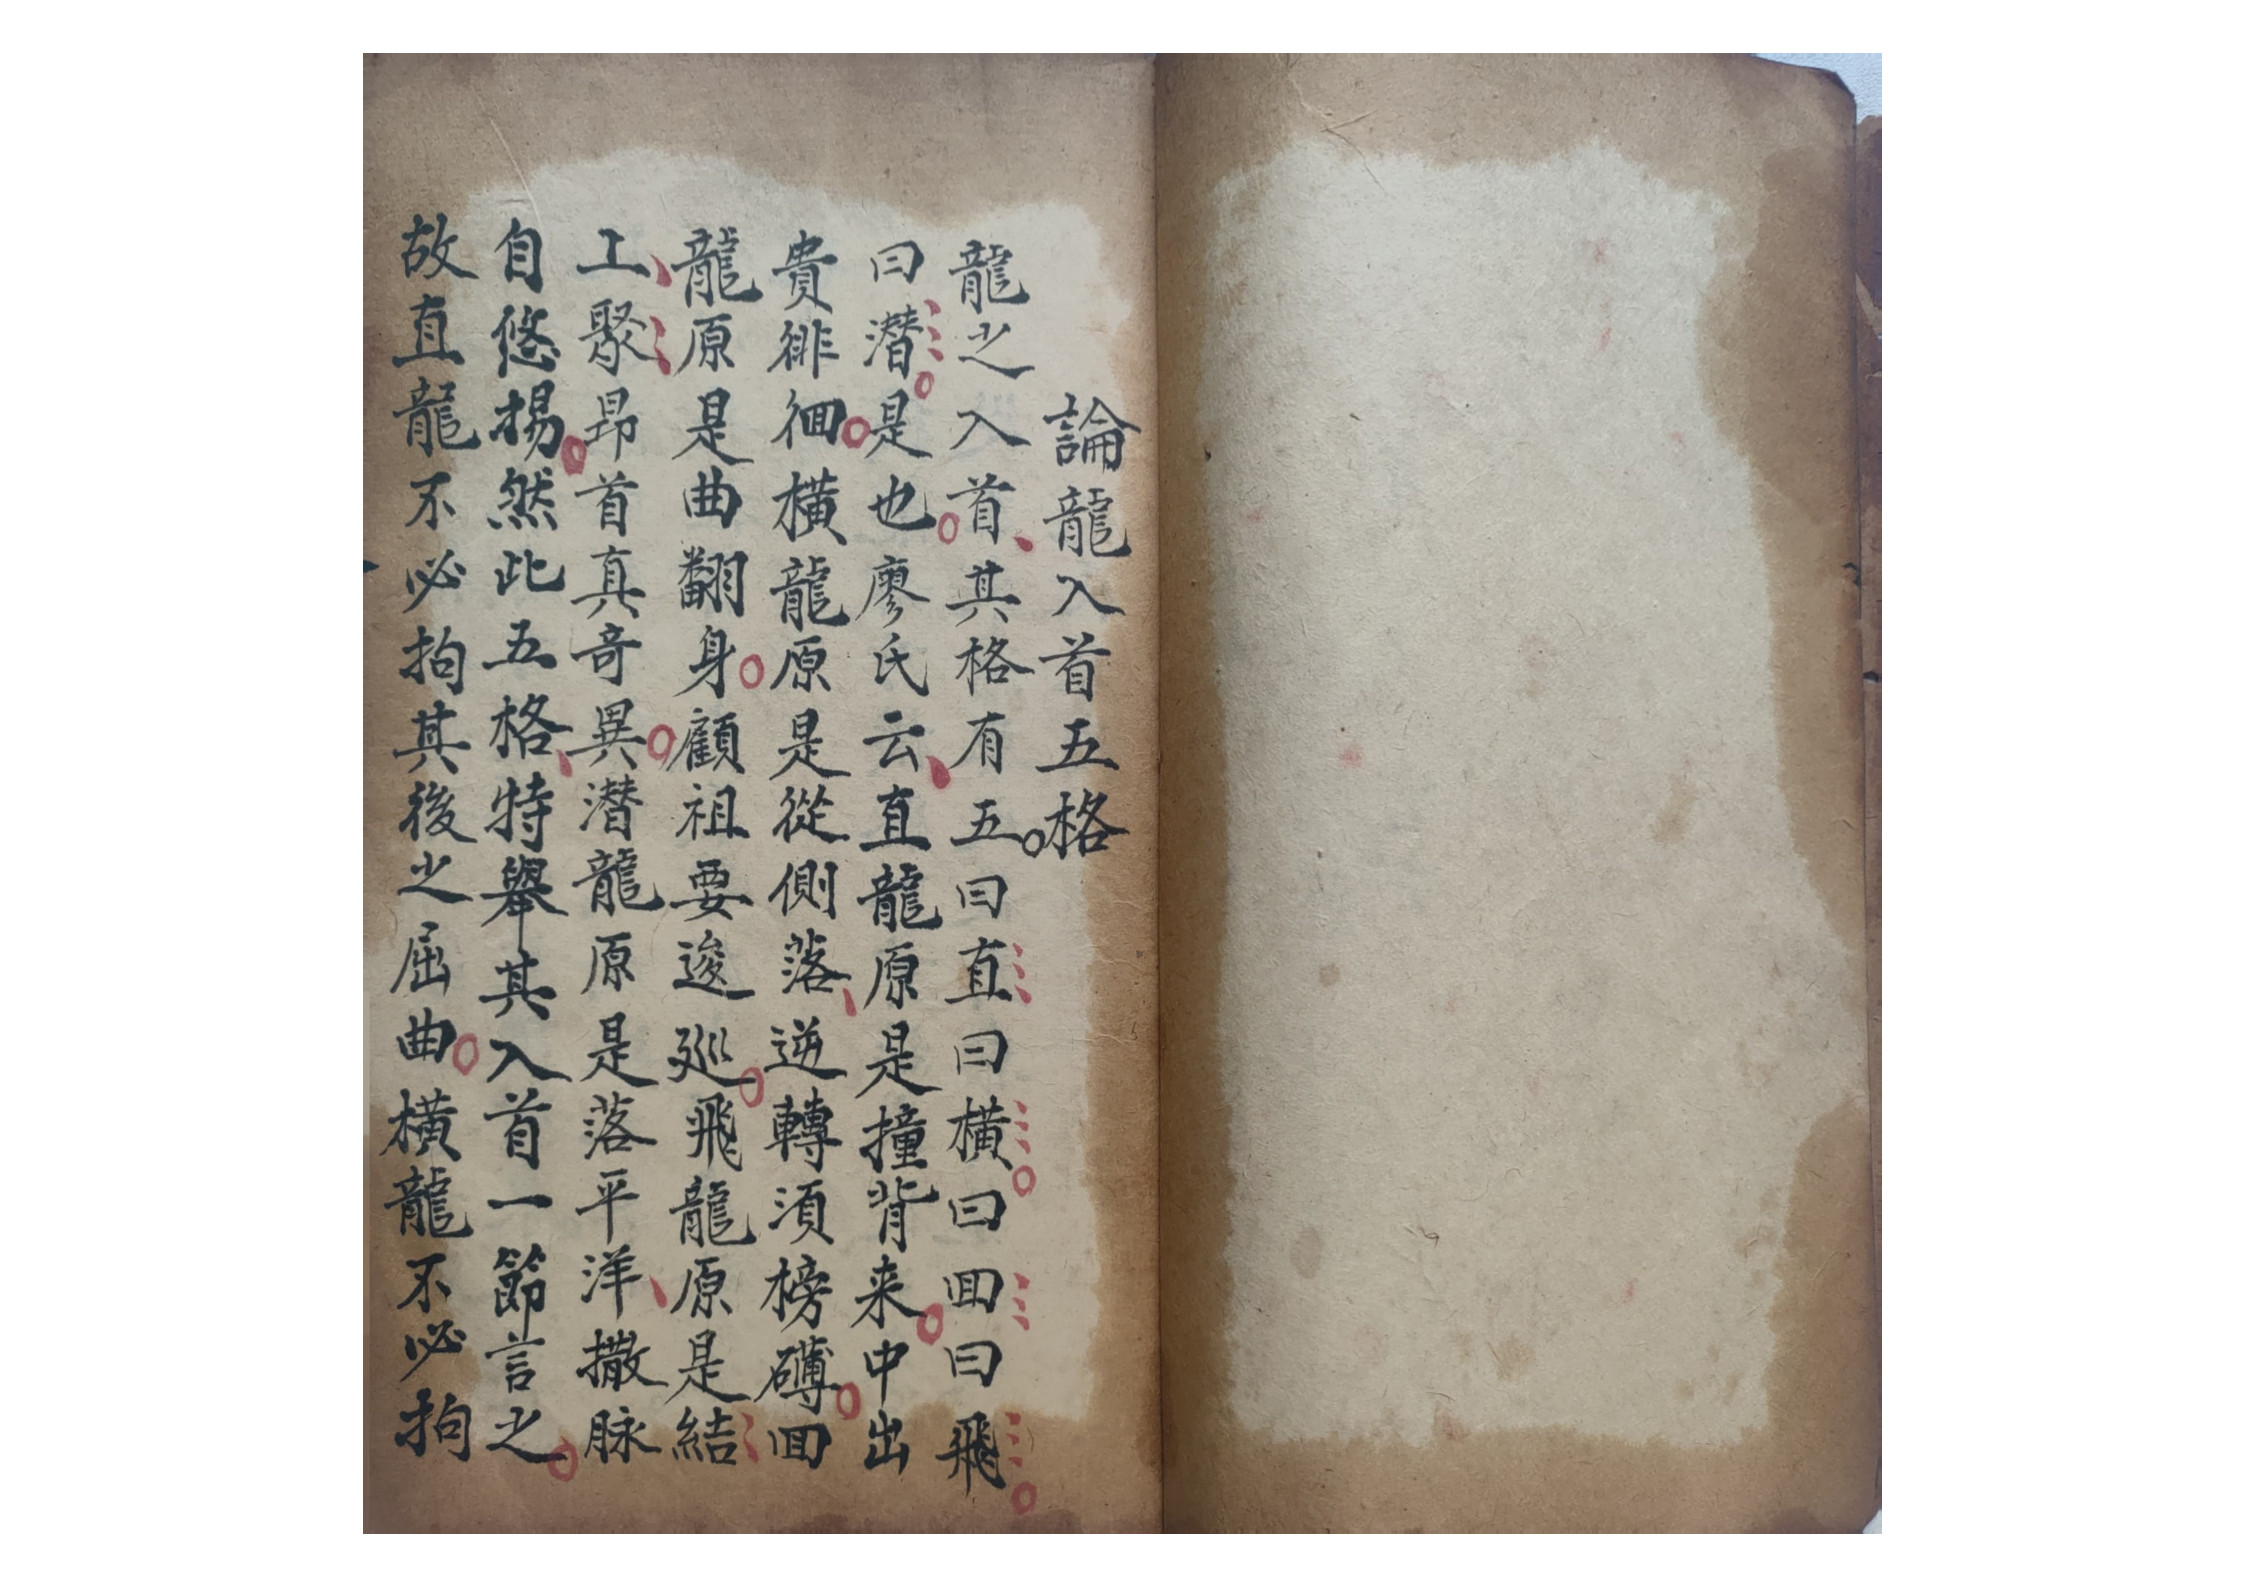 論龍入首五格
龍之入首其格有五曰直曰橫曰回曰飛
曰潛是也廖氏云直龍原是撞背来中出
貴徘徊橫龍原是從側落逆轉須榜礴回
龍原是曲翻身顧祖要逡廵飛龍原是結
上聚昂首真奇異潛龍原是落平洋撒脉
自悠揚然此五格特舉其入首一節言之
故直龍不必拘其後之屈曲橫龍不必拘